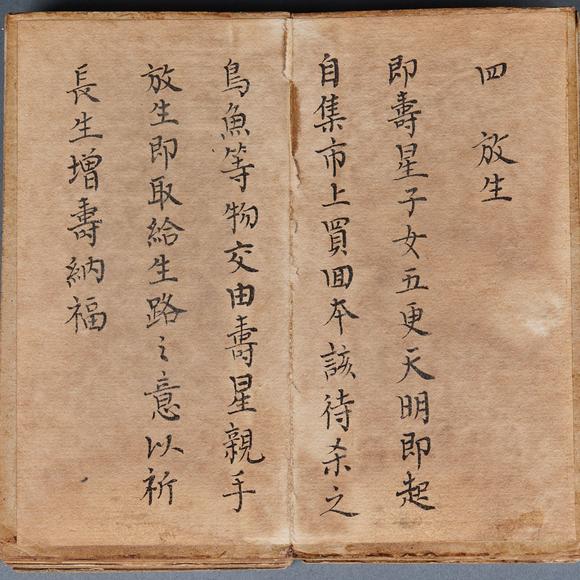 四 放生
即壽星子女五更天明即起
自集市上買回本該待杀之
鳥魚等物交由壽星親手
放生即取給生路之意以祈
長生增壽納福